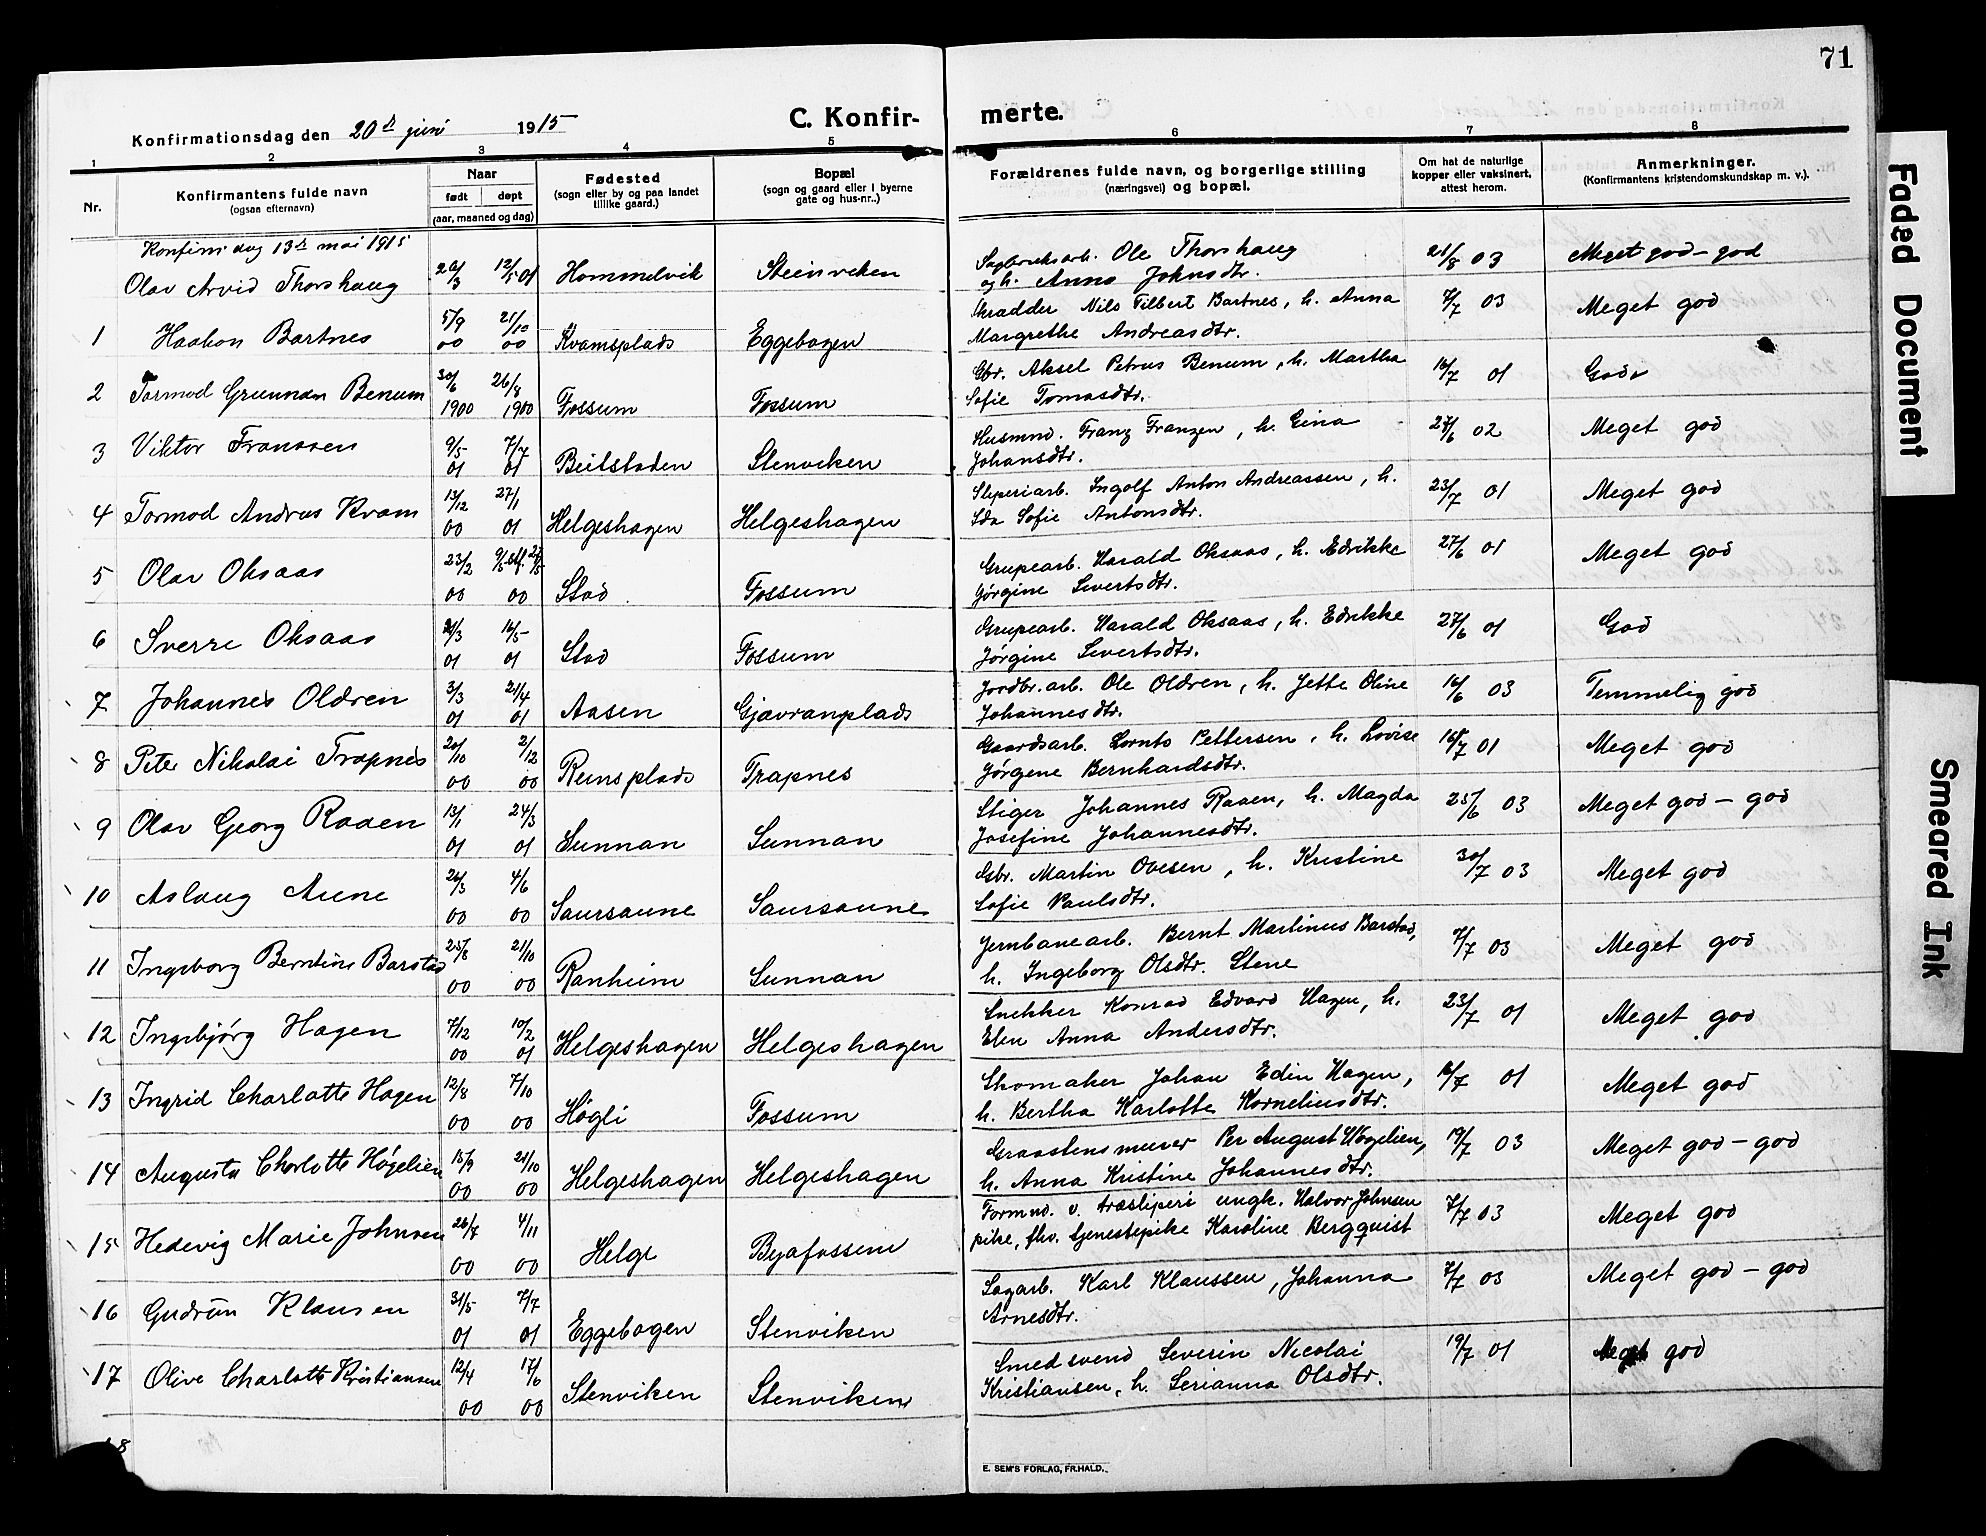 71
Konfirmationsdag den 20de juni 1915
C. Konfirmerte.
1 2 3 4 5 6 7 8
Nr.
Konfirmantens fulde navn
(ogsaa efternavn)
Naar
født døpt
(aar, maaned og dag)
Fødested
(sogn eller by og paa landet
tillike gaard.)
Bopæl
(sogn og gaard eller i byerne
gate og hus-nr..)
Forældrenes fulde navn, og borgerlige stilling
(næringsvei) og bopæl.
Om hat de naturlige
kopper eller vaksinert,
attest herom.
Anmerkninger.
(Konfirmantens kristendomskundskap m. v.).
Konfirm dag 13de mai 1915
Olav Arvid Thorshaug 20/3 12/5 01 Hommelvik Steinveken Sagbruksarb. Ole Thorshaug
og h. Anna Johnsdtr. 21/8 03 Meget god - god
1 Haakon Bartnes 5/9 00 21/10 00 Kvamsplads Eggebogen Skrædder Nils Tilbert Bartnes, h. Anna
Margrethe Andreasdtr. 7/7 03 Meget god
2 Tormod Grunnan Benum 30/6 1900 26/8 1900 Fossum Fossum Gbr. Aksel Petrus Benum, h. Martha
Sofie Tomasdtr. 16/7 01 God
3 Viktor Franssen 9/5 01 7/7 01 Beitstaden Stenveken Husmnd. Franz Franzen, h. Gina
Johansdtr. 27/6 02 Meget god
4 Tormod Andrus Kvam 13/12 00 27/1 01 Helgeshagen Helgeshagen Sliperiarb. Ingolf Anton Andreassen, h.
Ida Sofie Antonsdtr. 23/7 01 Meget god
5 Olav Oksaas 23/2 00 9/5 00 Stod Fossum Grupearb. Harald Oksaas, h. Edrikke
Jørgine Sivertsdtr. 27/6 01 Meget god
6 Sverre Oksaas 21/3 01 16/5 01 Stod Fossum Grupearb. Harald Oksaas, h. Edrikke
Jørgine Sivertsdtr. 27/6 01 God
7 Johannes Oldren 3/3 01 21/4 01 Aasen Gjævranplads Jordbr.arb. Ole Oldren, h. Jette Oline
Johannesdtr. 16/6 03 Temmelig god
8 Peter Nikolai Trapnes 20/10 00 2/12 00 Reinsplads Trapnes Gaardsarb. Lornts Pettersen, h. Lovise
Jørgene Bernhardsdtr. 16/7 01 Meget god
9 Olav Georg Raaen 13/1 01 24/3 01 Sunnan Sunnan Stiger Johannes Raaen, h. Magda
Josefine Johannesdtr. 25/6 03 Meget god - god
10 Aslaug Aune 26/3 00 4/6 00 Saursaune Saursaune Gbr. Martin Ovesen, h. Kristine
Sofie Paulsdtr. 30/7 03 Meget god
11 Ingeborg Berntine Barstad 25/8 00 21/10 00 Ranheim Sunnan Jernbanearb. Bernt Martinus Barstad,
h. Ingeborg Olsdtr. Stene 7/7 03 Meget god
12 Ingebjørg Hagen 7/12 00 10/2 01 Helgeshagen Helgeshagen Snekker Konrad Edvard Hagen, h.
Elen Anna Andersdtr. 23/7 01 Meget god
13 Ingrid Charlotte Hagen 12/8 00 7/10 00 Høgli Fossum Skomaker Johan Edin Hagen,
h. Bertha Karlotte Korneliusdtr. 16/7 01 Meget god
14 Augusta Charlotte Høgelien 15/9 00 21/10 00 Helgeshagen Helgeshagen Graastensmurer Per August Høgelien,
h. Anna Kristine Johannesdtr. 19/7 03 Meget god - god
15 Hedevig Marie Johnsen 26/7 00 4/11 00 Helge Byafossen Formnd. v. træsliperi ungk. Halvor Johnsen
pike, fhv. tjenestepike Karoline Bergquist 7/7 03 Meget god
16 Gudrun Klausen 31/5 01 7/7 01 Eggebogen Stenviken Sagarb. Karl Klaussen, Johanna
Arnesdtr. 7/7 03 Meget god - god
17 Olive Charlotte Kristiansen 12/4 00 17/6 00 Stenviken Stenviken Smedsvend Severin Nicolai
Kristiansen, h. Serianna Olsdtr. 19/7 01 Meget god
18
E. SEM'S FORLAG, FR.HALD.
Faded Document
Smeared Ink